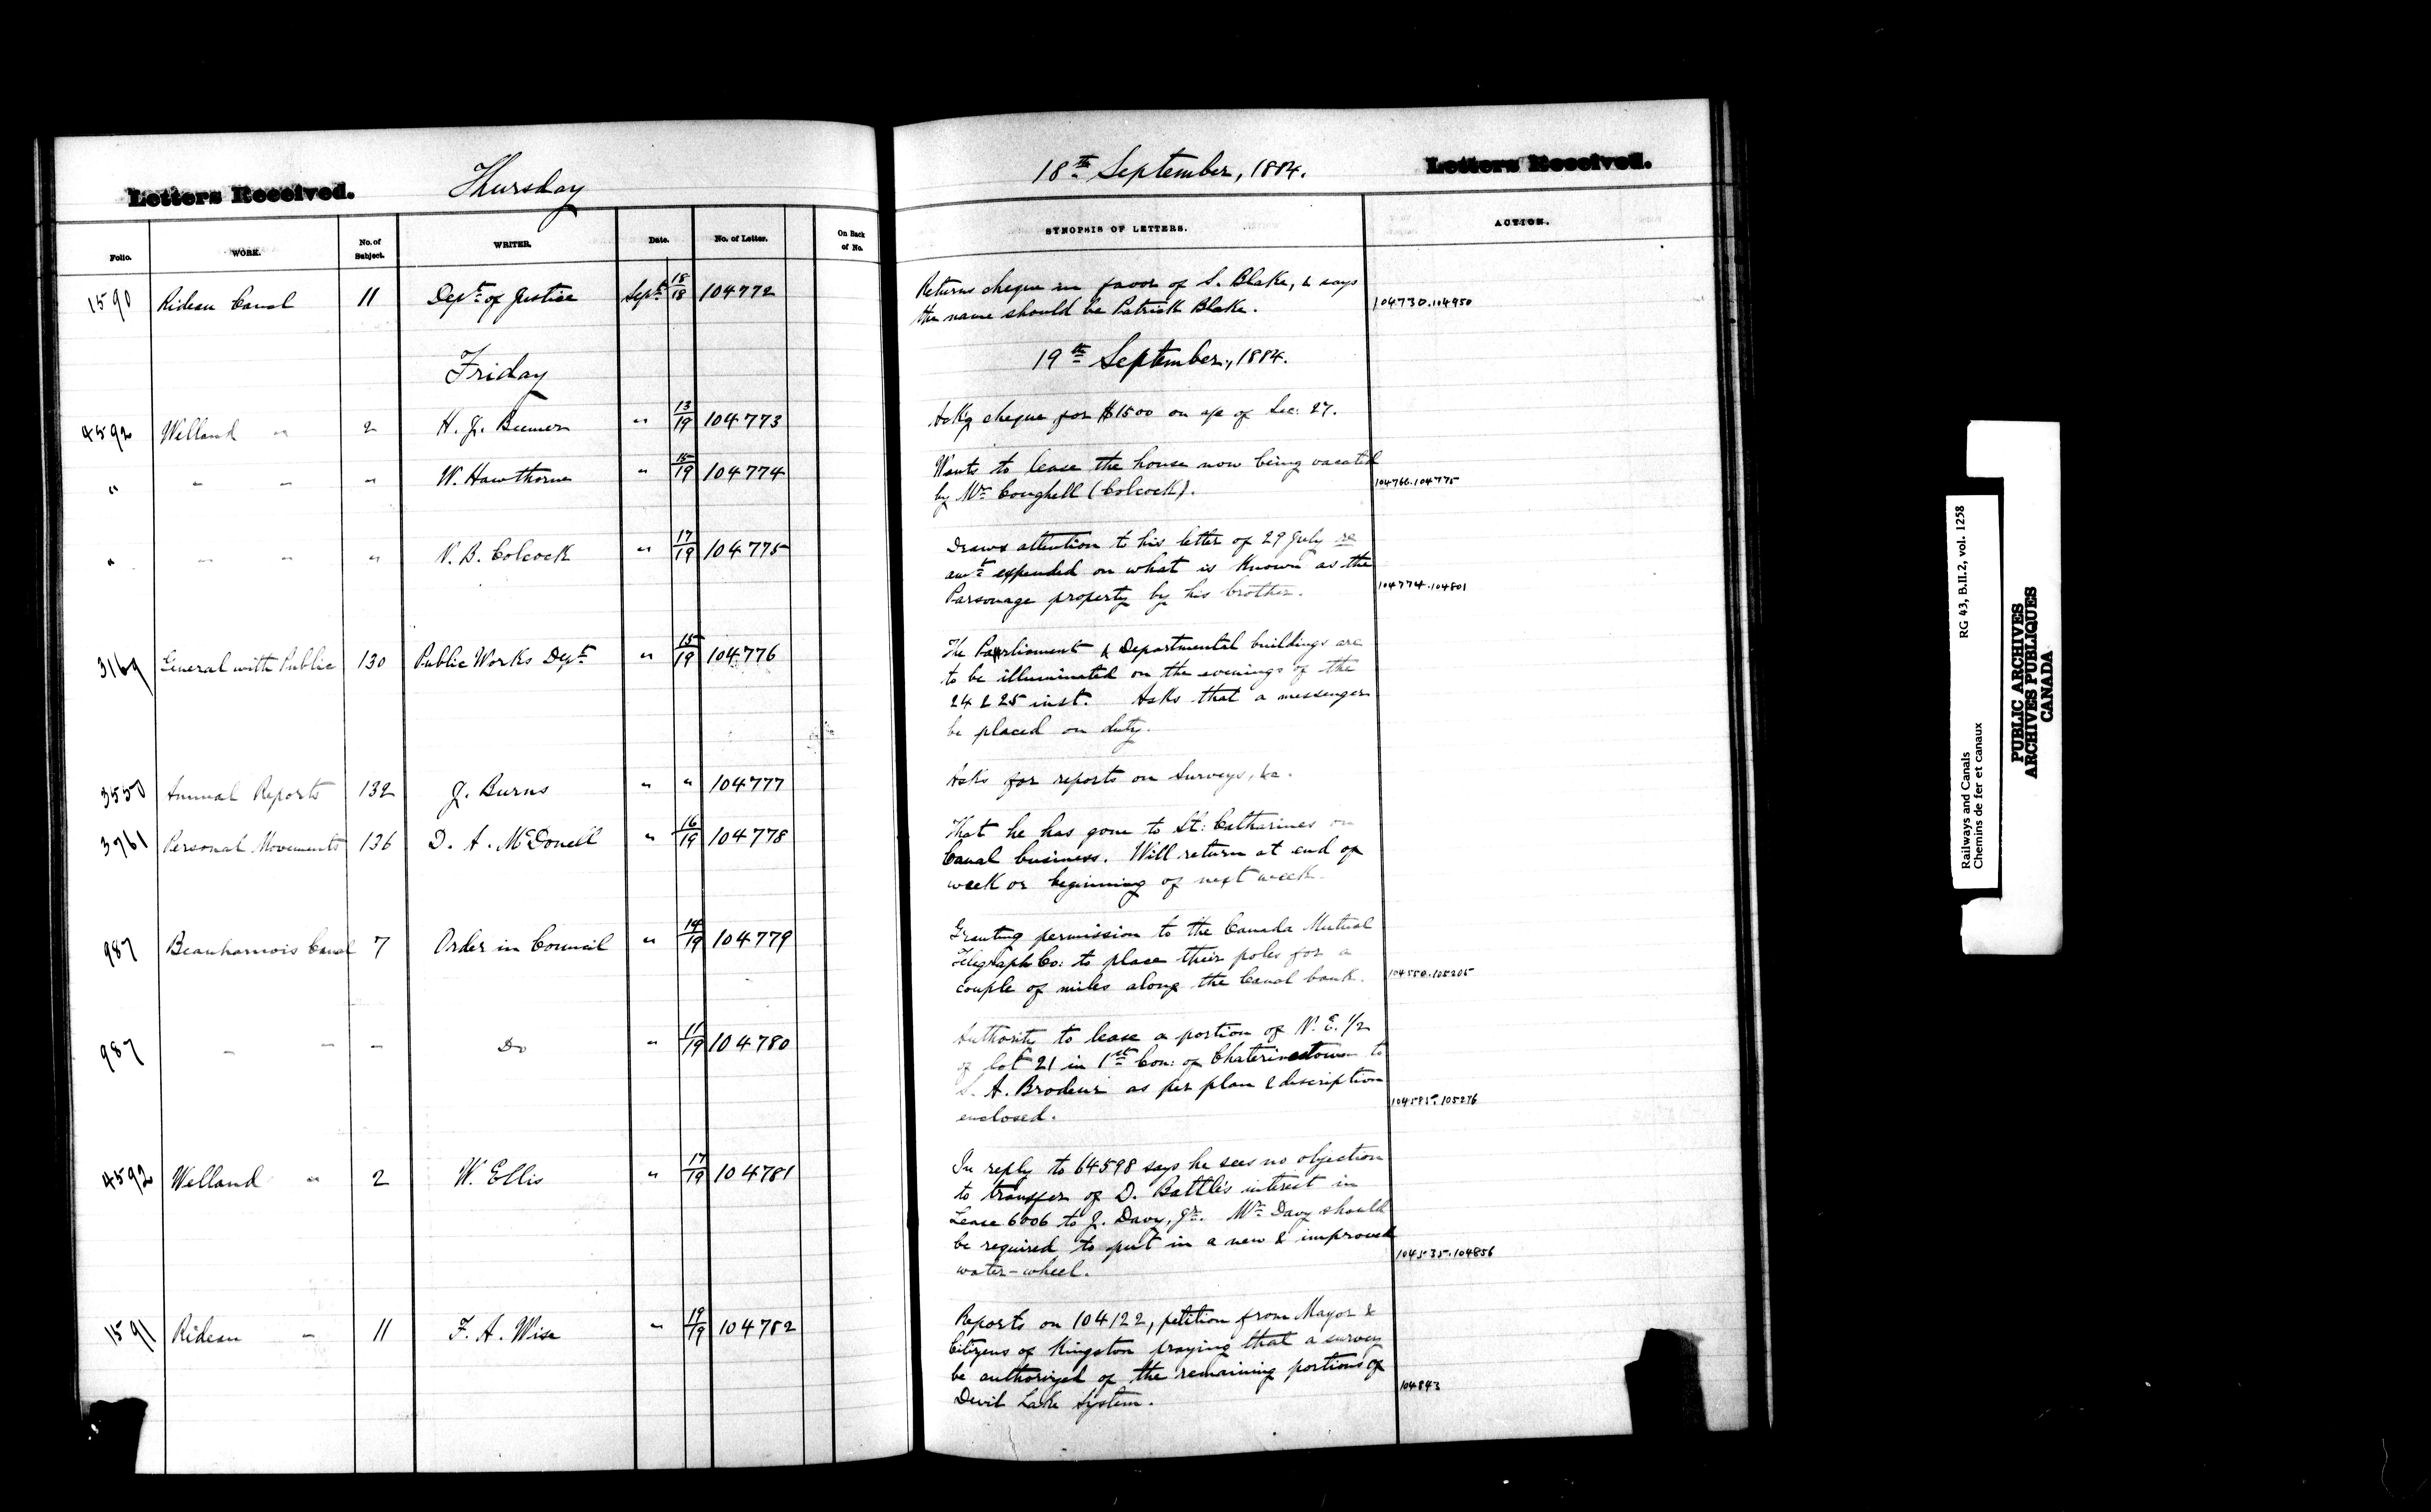 Letters Received. Thursday 18th September, 1884. Letters Received.
Folio. WORK. No. of Subject. WRITER. Date. No. of Letter. On Back of No. SYNOPSIS OF LETTERS. ACTION.
1590 Rideau Canal 11 Dept of Justice Sept 18/18 104772 Returns cheque in favor of S. Blake, & says
the name should be Patrick Blake. 104730.104950
Friday 19th September, 1884.
4592 Welland " 2 H. J. Beemer " 13/19 104773 Ackg cheque for $1500 on a/c of Sec: 27.
" " " " W. Hawthorne " 15/19 104774 Wants to lease the house now being vacated
by Mr Coughell (Colcock). 104766.104775
" " " " N. B. Colcock " 17/19 104775 Draws attention to his letter of 29 July re
amt expended on what is Known as the
Parsonage property by his brother. 104774.104801
3169 General with Public 130 Public Works Dept " 15/19 104776 The Parliament & Departmental buildings are
to be illuminated on the evenings of the
24 & 25 inst. Asks that a messenger
be placed on duty.
3550 Annual Reports 132 J. Burns " " 104777 Asks for reports on Surveys, &c.
3761 Personal Movements 136 D. A. McDonell " 16/19 104778 That he has gone to St: Catharines on
Canal business. Will return at end of
week or beginning of next week.
987 Beauharnois Canal 7 Order in Council " 19 104779 Granting permission to the Canada Mutual
Telegraph Co: to place their poles for a
couple of miles along the Canal bank. 104550.105205
987 " " " Do " 11/19 104780 Authority to lease a portion of N. E. 1/2
of lot 21 in 1st Con: of Chaterinestown to
A. Brodeur as per plan & description
enclosed. 104585.105276
4592 Welland " 2 W. Ellis " 17/19 104781 In reply to 64598 says he sees no objection
to transfer of D. Battle's interest in
Lease 6006 to J. Davy, Jr. Mr Davy should
be required to put in a new & improved
water-wheel. 104535.104856
1591 Rideau " 11 F. A. Wise " 19/19 104782 Reports on 104122, petition from Mayor &
Citizens of Kingston praying that a survey
be authorized of the remaining portions of
Devil Lake System. 104843
Railways and Canals RG 43, B.II.2, vol. 1258
Chemins de fer et canaux
PUBLIC ARCHIVES
ARCHIVES PUBLIQUES
CANADA